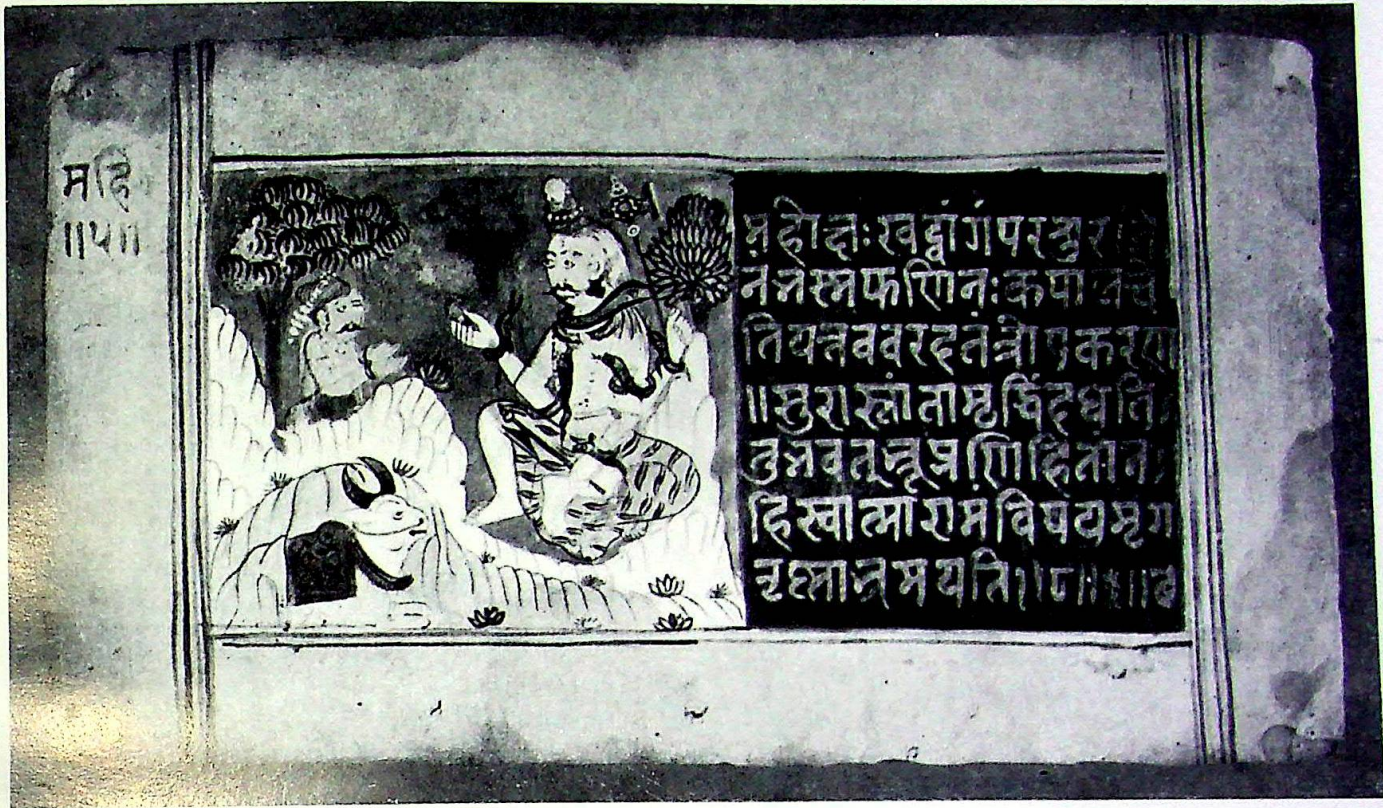 महि
॥५॥
महोक्षः खट्वांगं परशुर
नंभस्मफणिनः कपालंचे
तियत्तववरदतंत्रोपकरण
॥सुरास्तांतामृद्धिंदधति
तुभवद्भ्रूप्रणिहितांन
हिस्वात्मारामंविषयमृग
तृष्णाभ्रमयति॥८॥